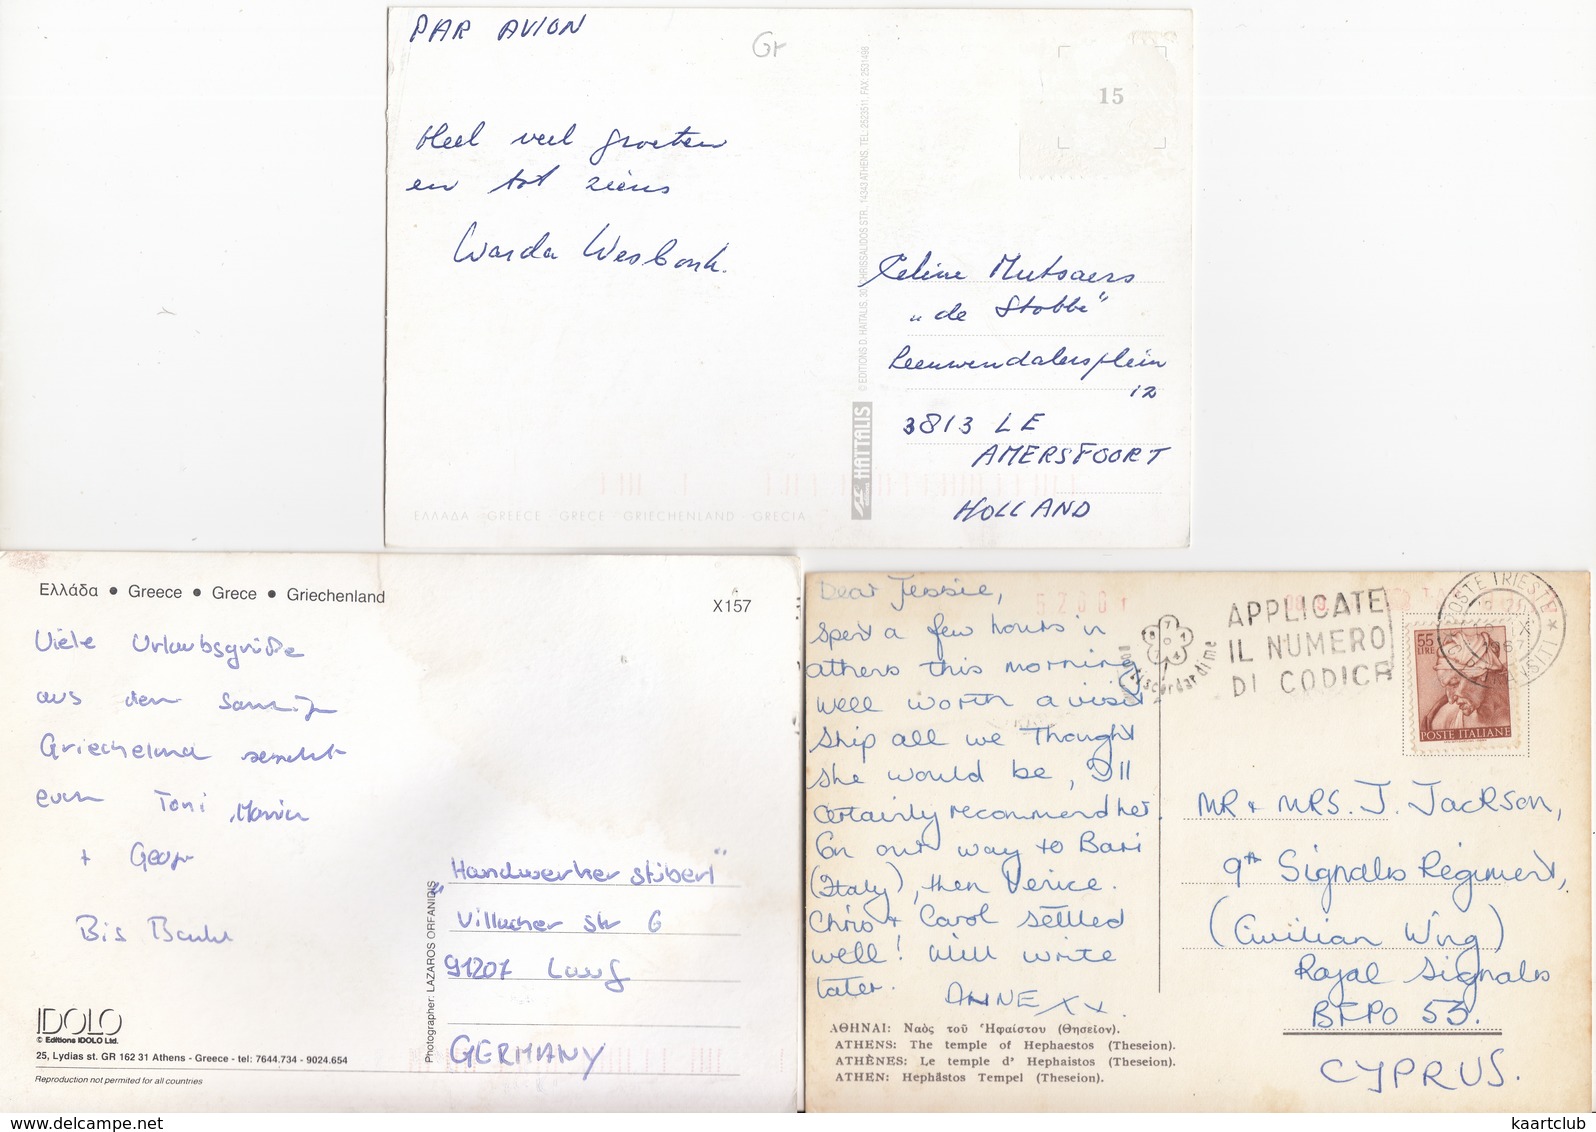 PAR AVION
Gr
15
Heel veel groeten
en tot ziens
Warda Wesbonk.
© EDITIONS D. HAITALIS, 30, CHRISSALIDOS STR., 14343 ATHENS, TEL: 2523511, FAX: 2531498
HAITALIS
Celine Mutsaers
„de Stobbe"
Leeuwendalersplein
12
3813 LE
AMERSFOORT
HOLLAND
ΕΛΛΑΔΑ · GREECE · GRECE · GRIECHENLAND · GRECIA
Ελλάδα • Greece • Grece • Griechenland
X157
Viele Urlaubsgrüße
aus dem sonnigen
Griechenland sendet
euch Toni, Maria
+ Georg
Bis Balde
Handwerker stüberl"
Villacher Str 6
91207 Lauf
GERMANY
Photographer: LAZAROS ORFANIDIS
IDOLO
© Editions IDOLO Ltd.
25, Lydias st. GR 162 31 Athens - Greece - tel: 7644.734 - 9024.654
Reproduction not permited for all countries
Dear Jessie,
Spent a few hours in
athens this morning
well worth a visit
Ship all we thought
she would be, I'll
certainly recommend her.
On our way to Bari
(Italy), then Venice.
Chris + Carol settled
well! Will write
later.
ANNE xx
ΑΘΗΝΑΙ: Ναὸς τοῦ Ἡφαίστου (Θησεῖον).
ATHENS: The temple of Hephaestos (Theseion).
ATHÈNES: Le temple d' Hephaistos (Theseion).
ATHEN: Hephästos Tempel (Theseion).
non ti scordar di me
APPLICATE
IL NUMERO
DI CODICE
POSTE TRIESTE
1967
55
LIRE
POSTE ITALIANE
MR + MRS. J. JACKSON,
9th Signals Regiment,
(Civilian Wing)
Royal Signals
BFPO 53.
CYPRUS.
www.delcampe.net
kaartclub